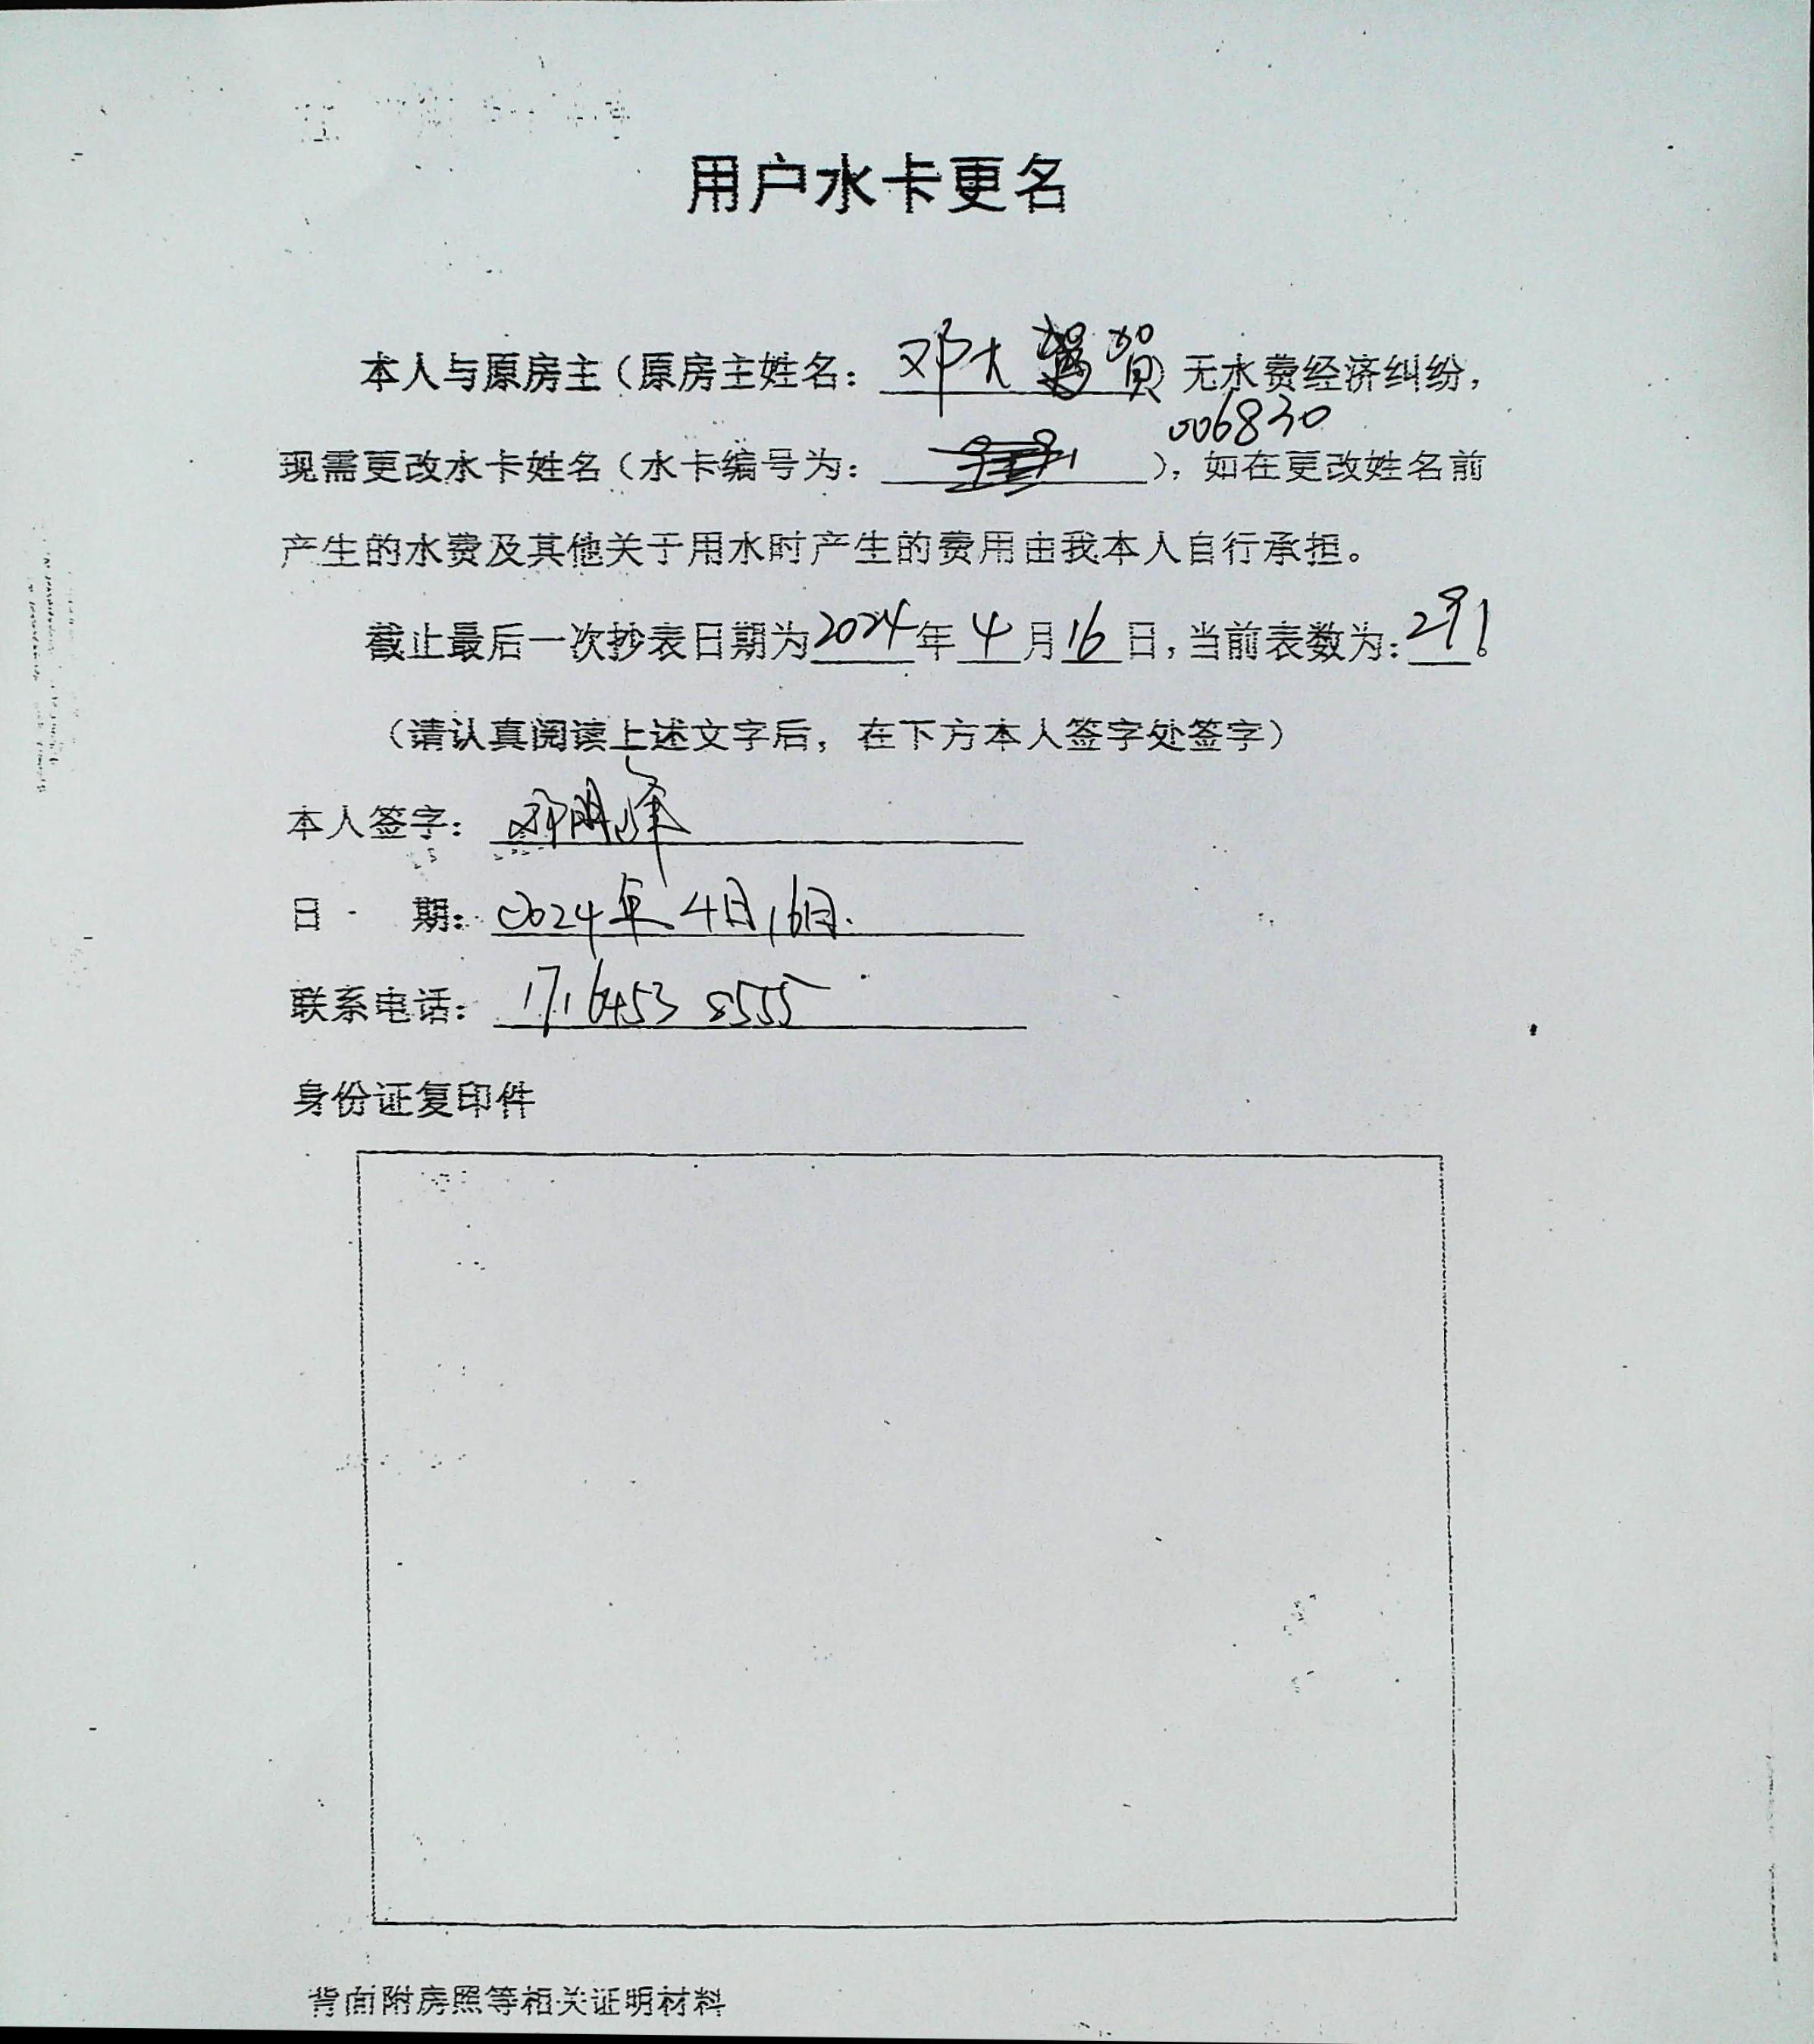 用户水卡更名
本人与原房主（原房主姓名：邓大贺）无水费经济纠纷，
006830
现需更改水卡姓名（水卡编号为：），如在更改姓名前
产生的水费及其他关于用水时产生的费用由我本人自行承担。
截止最后一次抄表日期为2024年4月16日，当前表数为：291。
（请认真阅读上述文字后，在下方本人签字处签字）
本人签字：邓明峰
日期：2024年4月16日.
联系电话：17164538555
身份证复印件
背面附房照等相关证明材料